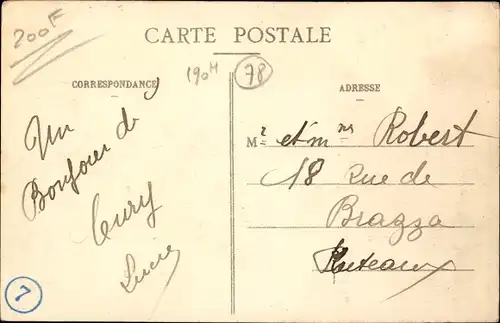 200F
CARTE POSTALE
1904
78
CORRESPONDANCE
ADRESSE
Un
Bonjour de
Cury
Lucie
Mr et mme Robert
18 Rue de
Brazza
Puteaux
7